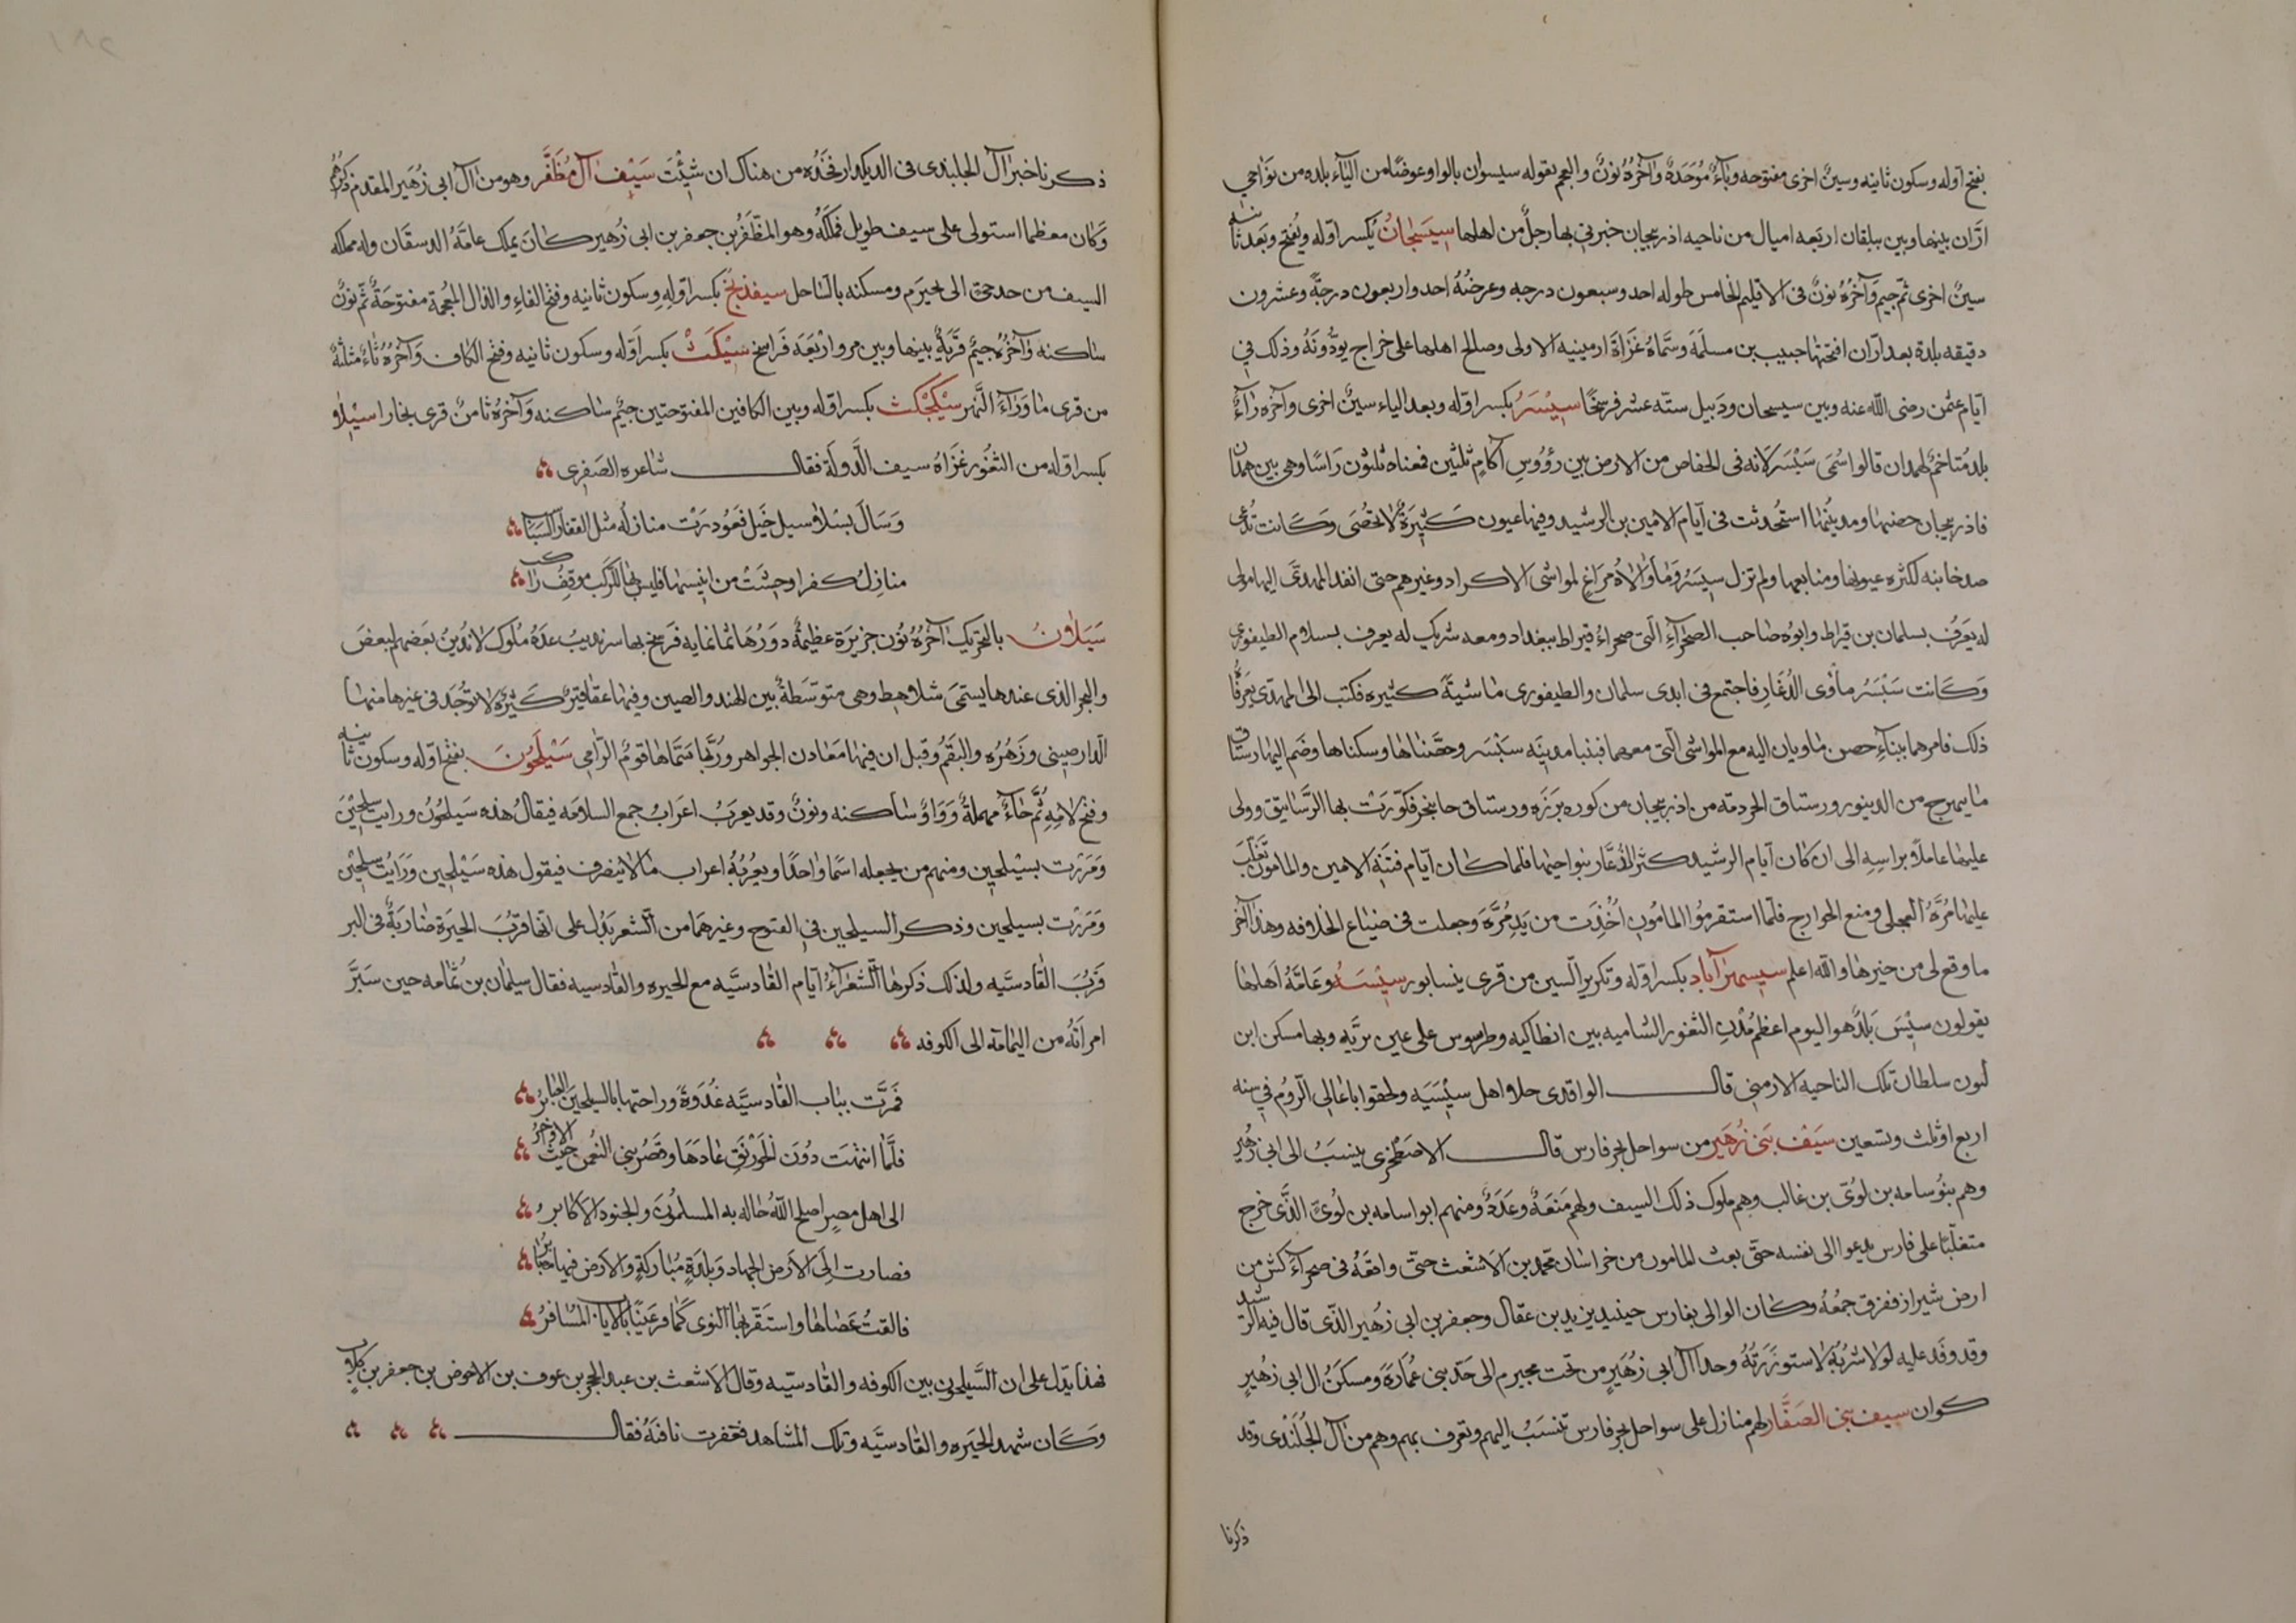 بفتح اوله وسكون ثانيه وسين اخرى مفتوحه وباء موحدة وآخره نون والعجم يقوله سيسوان بالواو عوضا من الياء بلده من نواحي
ارّان بينها وبين بيلقان اربعه اميال من ناحيه اذربيجان خبرني بها رجل من اهلها سيسجان بكسر اوله ويفتح وبعد ثانيه
سين اخرى ثم جيم وآخره نون في الاقليم الخامس طوله احد وسبعون درجه وعرضه احد واربعون درجة وعشرون
دقيقه بلدة بعد ارّان افتتحها حبيب بن مسلمة وسماه غزاة ارمينيه الاولى وصالح اهلها على خراج يودّونه وذلك في
ايام عثمن رضى الله عنه وبين سيسجان ودبيل ستّه عشر فرسخا سيسر بكسر اوله وبعد الياء سين اخرى وآخره راء
بلد متاخم لهمدان قالوا سمى سيسر لانه في الخفاص من الارض بين رؤوس آكام ثلثين فمعناه ثلثون راسا وهي بين همدان
فاذربيجان حصنها ومدينتها استحدثت في ايام الامين بن الرشيد وفيها عيون كثيرة لا تحصى وكانت تدعى
صدخانيه لكثره عيونها ومنابعها ولم تزل سيسر وما والاه مراع لمواشى الاكراد وغيرهم حتى انفذ المهدي اليها مولى
له يعرف بسلمان بن قيراط وابوه صاحب الصحراء التي صحراء قيراط ببغداد ومعه شريك له يعرف بسلام الطيفوري
وكانت سيسر مأوى الذعار فاجتمع في ايدى سلمان والطيفورى ماشية كثيره فكتب الى المهدي يعرفا
ذلك فامرهما ببناء حصن ماويان اليه مع المواشى التي معهما فبنيا مدينه سيسر وحصّناها وسكناها وضم اليها رستاق
مايمهرج من الدينور ورستاق الجردمه من اذربيجان من كوره برزه ورستاق خانيجر فكوّرت بها الرساتيق وولى
عليها عاملا براسه الى ان كان ايام الرشيد كثر الذعّار بنواحيها فلما كان ايام فتنه الامين والمامون تغلب
عليها مرّة العجلى ومنع الخوارج فلما استقر مؤا المامون اخذت من يد مرّة وجعلت في ضياع الخلافه وهذا آخر
ما وقع لى من خبرها والله اعلم سيسمراباد بكسر اوله وتكرير السين من قرى نيسابور سيسه وعامّة اهلها
يقولون سيس بلد هو اليوم اعظم مدن الثغور الشاميه بين انطاكيه وطرسوس على عين زربه وبها مسكن ابن
ليون سلطان تلك الناحيه الارمني قال الواقدى جلا اهل سيسيه ولحقوا باعالى الروم في سنه
اربع او ثلث وتسعين سيف بني زهير من سواحل بحر فارس قال الاصطخرى ينسب الى ابي زهير
وهم بنو سامه بن لوى بن غالب وهم ملوك ذلك السيف ولهم منعة وعدد ومنهم ابو اسامه بن لوى الذى خرج
متغلبا على فارس يدعوا الى نفسه حتى بعث المامون من خراسان محمد بن الاشعث حتى واقعه في صحراء كش من
ارض شيراز ففرق جمعه وكان الوالى بفارس حينيذ يزيد بن عقال وجعفر بن ابى زهير الذى قال فيه الرشيد
وقد وفد عليه لولا شربه لاستوزرته وحد آل ابى زهير من تحت نجيرم الى حد بنى عمارة ومسكن ال ابى زهير
كوان سيف بنى الصفار لهم منازل على سواحل بحر فارس تنسب اليهم وتعرف بهم وهم من آل الجلندى وقد
ذكرنا
ذكرنا خبر آل الجلندى في الديكدان فخذه من هناك ان شئت سيف آل مظفر وهو من آل ابى زهير المقدم ذكرهم
وكان معظما استولى على سيف طويل فملكه وهو المظفر بن جعفر بن ابى زهير كان يملك عامة الدستقان وله مملكه
السيف من حد جى الى نجيرم ومسكنه بالساحل سيفذنج بكسر اوله وسكون ثانيه وفتح الفاء والذال المعجمة مفتوحة ثم نون
ساكنه وآخره جيم قرية بينها وبين مرو اربعة فراسخ سيكث بكسر اوله وسكون ثانيه وفتح الكاف وآخره ثاء مثلثة
من قرى ما وراء النهر سيكجكث بكسر اوله وبين الكافين المفتوحتين جيم ساكنه وآخره ثا من قرى بخارا سيلاو
بكسر اوله من الثغور غزاه سيف الدولة فقال شاعره الصفرى
وسال بسلاو سيل خيل فغودرت منازله مثل القفار السباسب
منازل كفر اوحشت من انيسها فليس بها للركب موقف راكب
سيلاون بالتحريك آخره نون جزيرة عظيمة دورها ثمانمايه فرسخ بها سرنديب عدة ملوك لا يدين بعضهم لبعض
والبحر الذى عندها يسمى شلاهط وهى متوسطة بين الهند والصين وفيها عقاقير كثيرة لا توجد في غيرها منها
الدارصينى وزهره والبقم وقيل ان فيها معادن الجواهر وربما سماها قوم الرامى سيلحون بفتح اوله وسكون ثانيه
وفتح لامه ثم حاء مهملة وواو ساكنه ونون وقد يعرب اعراب جمع السلامه فيقال هذه سيلحون ورايت سيلحين
ومررت بسيلحين ومنهم من يجعله اسما واحدا ويعربه اعراب ما لا ينصرف فيقول هذه سيلحين ورايت سيلحين
ومررت بسيلحين وذكر السيلحين في الفتوح وغيرهما من الشعر يدل على انها قرب الحيرة ضاربة في البر
قرب القادسيه ولذلك ذكرها الشعراء ايام القادسيه مع الحيره والقادسيه فقال سليمان بن ثمامه حين سير
امراته من اليمامه الى الكوفه
فمرت بباب القادسيه غدوة وراحتها بالسيلحين العباير
فلما انتهت دون الخورنق عادها وقصر بني النعمن حيث الاواخر
الى اهل مصر اصلح الله حاله به المسلمون والجنود الاكابر
فصارت الى الارض الجهاد وبلدة مباركة والارض فيها
فالقت عصاها واستقر بها النوى كما قر عينا بالاياب المسافر
فهذا يدل على ان السيلحون بين الكوفه والقادسيه وقال الاشعث بن عبد الحجر بن عوف بن الاحوص بن جعفر بن كلاب
وكان شهد الحيره والقادسيه وتلك المشاهد فعقرت ناقته فقال